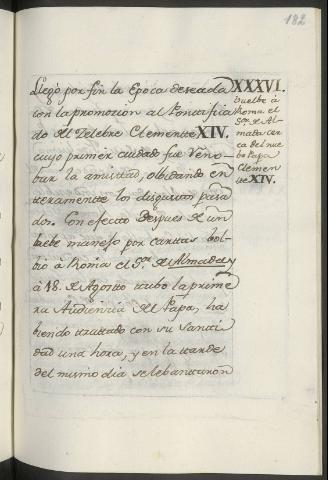 182
Llegò por fin la Epoca deseada
con la promoción al Pontifica
do del Zelebre Clemente XIV.
cuyo primer cuidado fue Reno-
bar la amistad, olbidando en
teramente los disgustos pasa
dos. Con efecto despues de un
brebe manejo por cartas bol-
bió à Roma el Sr. de Almada, y
à 18. de Agosto tubo la prime
ra Audiencia del Papa, ha
biendo tratado con su Santi
dad una hora, y en la tarde
del mismo dia se lebantaron
XXXVI.
Buelbe à
Roma el
Sr. de Al-
mada cer
ca del nue
bo Papa
Clemen
te XIV.